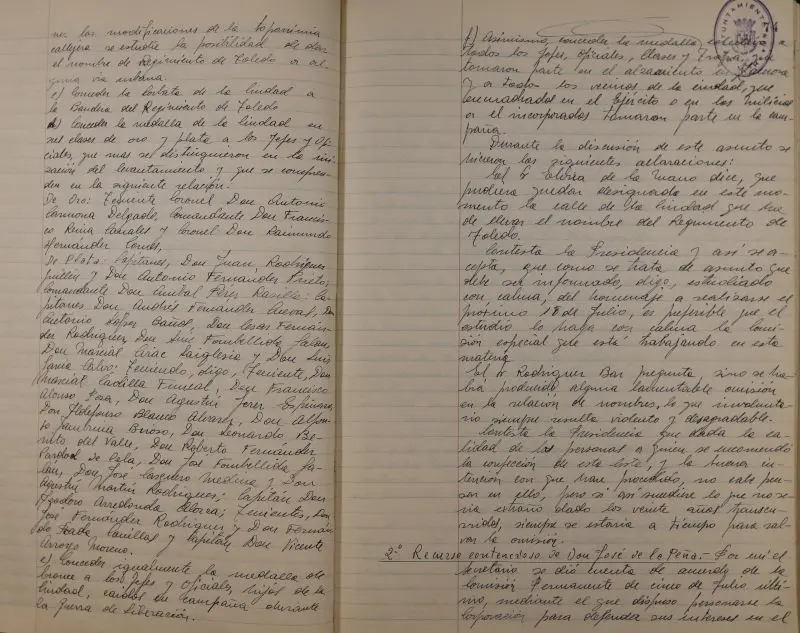 nes las modificaciones de la toponimia
callejera se estudie la posibilidad de dar
el nombre de Regimiento de Toledo a al-
guna via urbana.
c) Conceder la Corbata de la Ciudad a
la Bandera del Regimiento de Toledo
d) Conceder la medalla de la Ciudad en
sus clases de oro y plata a los Jefes y Ofi-
ciales, que mas se distinguieron en la ini-
ciación del levantamiento y que se compren-
den en la siguiente relación:
De Oro: Teniente Coronel Don Antonio
Carmona Delgado, Comandante Don Francis-
co Reina Canales y Coronel Don Raimundo
Hernandez Comes,
De Plata: Capitanes, Don Juan Rodriguez
Guillén y Don Antonio Fernandez Prieto,
Comandante Don Anibal Perez Ca-
pitanes Don Andrés Fernandez Cuevas, Don
Antonio Lopez Don Cesar Fernán-
dez Rodriguez, Don Luis Fombellida
Don Marcial y Don Luis
Calvo; digo, Teniente, Don
Marcial Don Francisco
Alonso Sosa, Don Agustin Jerez
Don Ildefonso Blanco Alvarez, Don Alfon-
so Don Leonardo Be-
nito del Valle, Don Roberto Fernández
Don José Fombellida
Don José Medina y Don
Agustin Martin Rodriguez; Capitán Don
Teodoro Arredonda Tenientes, Don
José Fernández Rodriguez y Don Fernan-
do y Capitán Don Vicente
Arroyo Moreno.
e) Conceder igualmente la medalla de
bronce a los Jefes y Oficiales, hijos de la
Ciudad, caidos en campaña durante
la guerra de liberación.
f) Asimismo, conceder la medalla a
todos los Jefes, Oficiales, Clases y Tropa, que
tomaron parte en el alzamiento en Zamora
y a todos los vecinos de la ciudad, que
encuadrados en el Ejército o en las milicias
a él incorporadas tomaron parte en la cam-
paña.
Durante la discusión de este asunto se
hicieron las siguientes aclaraciones:
El Sr. de la Mano dice, que
pudiera quedar designada en este mo-
mento la calle de la Ciudad que ha
de llevar el nombre del Regimiento de
Toledo.
Contesta la Presidencia y así se a-
cepta, que como se trata de asunto que
debe ser informado, digo, estudiado
con calma, del homenaje a realizarse el
próximo 18 de Julio, es preferible que el
estudio lo haga con calma la Comi-
sión especial que está trabajando en esta
materia.
El Sr. Rodriguez Bar pregunta, si no se ha-
brá producido alguna lamentable omisión
en la relación de nombres, lo que involunta-
rio siempre resulta violento y desagradable.
Contesta la Presidencia que dada la ca-
lidad de las personas a quien se encomendó
la confección de esta lista, y la buena in-
tención con que han procedido, no cabe pen-
sar en ello, pero si así sucediese lo que no se-
ria extraño dado los veinte años transcu-
rridos, siempre se estaria a tiempo para sal-
var la omisión.
2º Recurso contencioso de Don José de la Peña.- Por mi el
Secretario se dió cuenta de acuerdo de la
Comisión Permanente de cinco de Julio últi-
mo, mediante el que dispuso personarse la
Corporación para defender sus intereses en el